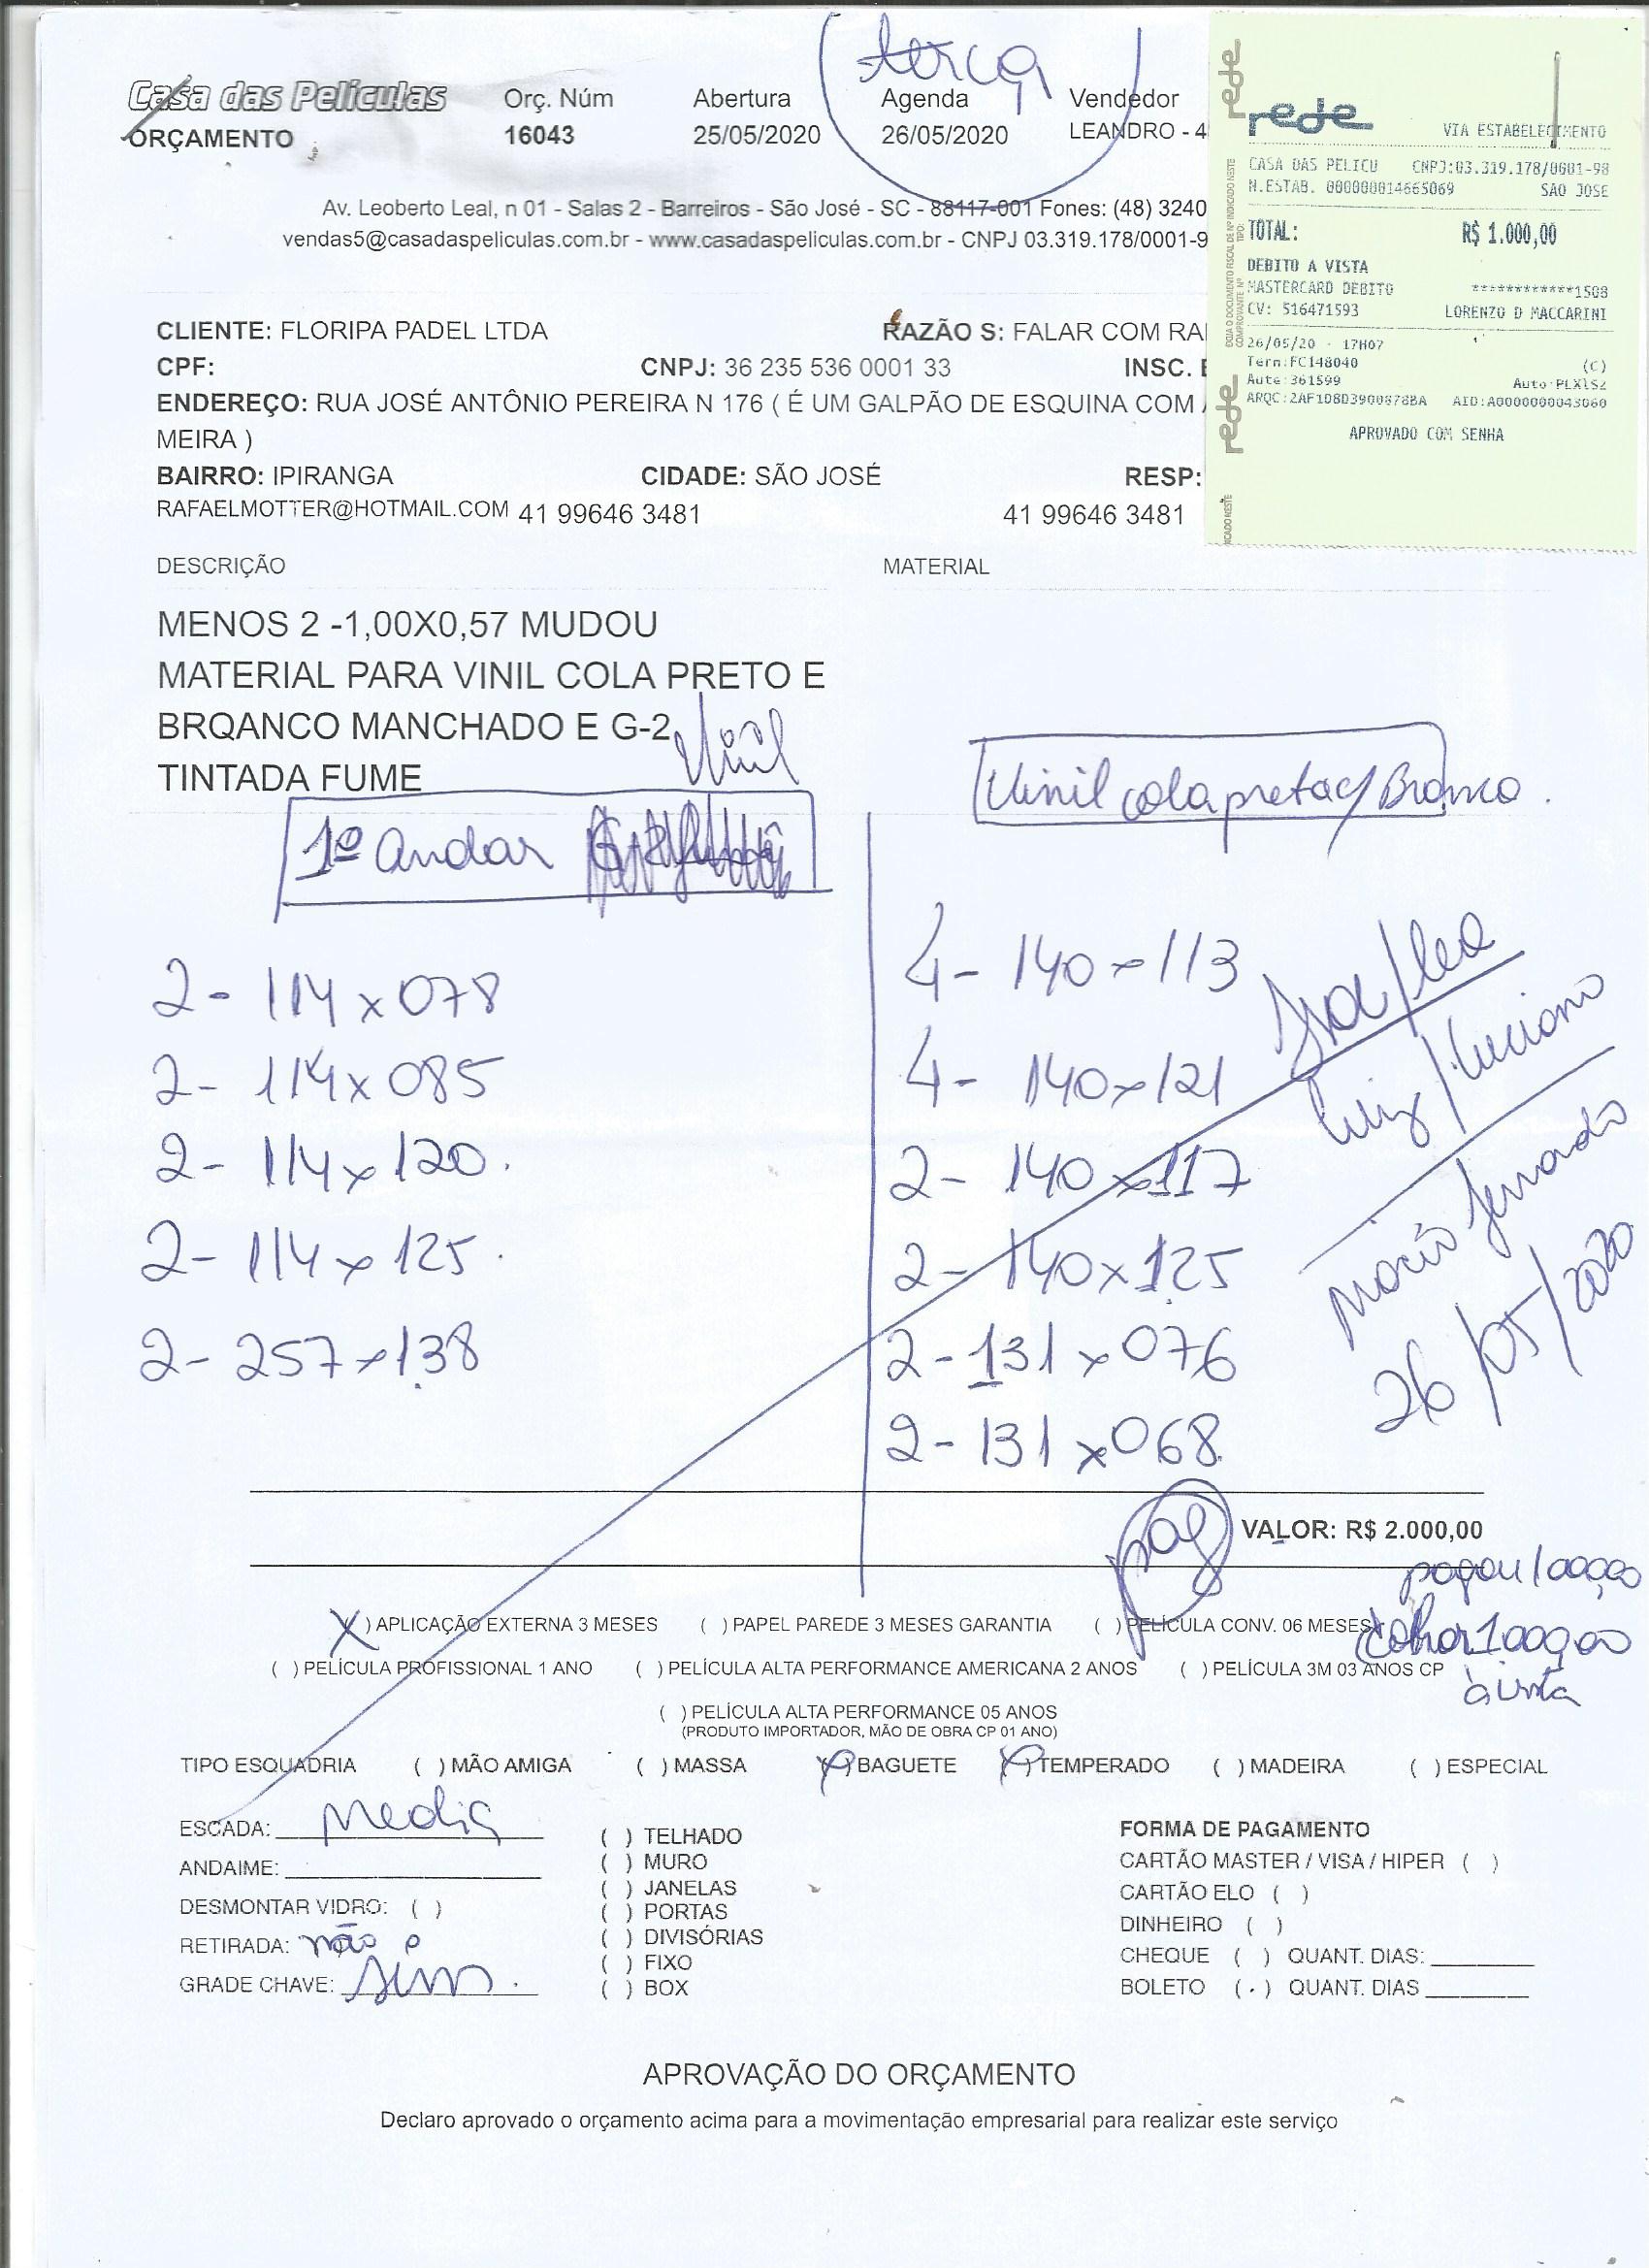 terça
Casa das Películas
ORÇAMENTO
Orç. Núm
16043
Abertura
25/05/2020
Agenda
26/05/2020
Vendedor
LEANDRO - 4
Av. Leoberto Leal, n 01 - Salas 2 - Barreiros - São José - SC - 88117-001 Fones: (48) 3240
vendas5@casadaspeliculas.com.br - www.casadaspeliculas.com.br - CNPJ 03.319.178/0001-9
rede
VIA ESTABELECIMENTO
CASA DAS PELICU CNPJ:03.319.178/0001-98
N.ESTAB. 000000014665069 SAO JOSE
TOTAL: R$ 1.000,00
DEBITO A VISTA
MASTERCARD DEBITO ************1508
CV: 516471593 LORENZO D MACCARINI
26/05/20 - 17H07
Term:FC148040 (C)
Aute:361599 Auto:PLX1S2
ARQC:2AF108D3900878BA AID:A0000000043060
APROVADO COM SENHA
CLIENTE: FLORIPA PADEL LTDA
RAZÃO S: FALAR COM RA
CPF:
CNPJ: 36 235 536 0001 33
INSC. E
ENDEREÇO: RUA JOSÉ ANTÔNIO PEREIRA N 176 ( É UM GALPÃO DE ESQUINA COM
MEIRA )
BAIRRO: IPIRANGA
CIDADE: SÃO JOSÉ
RESP:
RAFAELMOTTER@HOTMAIL.COM 41 99646 3481
41 99646 3481
DESCRIÇÃO
MATERIAL
MENOS 2 -1,00X0,57 MUDOU
MATERIAL PARA VINIL COLA PRETO E
BRQANCO MANCHADO E G-2
TINTADA FUME
Vinil
1º Andar
2- 114x078
2- 114x085
2- 114x120.
2- 114x125.
2- 257x138
Vinil cola preta c/ Branco.
4- 140x113
4- 140x121
2- 140x117
2- 140x125
2- 131x076
2- 131x068
/Leo
Luiz/Luciano
26/05/2020
pag
VALOR: R$ 2.000,00
pagou 1000,00
cobrar 1.000,00
à vista
(X) APLICAÇÃO EXTERNA 3 MESES ( ) PAPEL PAREDE 3 MESES GARANTIA ( ) PELÍCULA CONV. 06 MESES
( ) PELÍCULA PROFISSIONAL 1 ANO ( ) PELÍCULA ALTA PERFORMANCE AMERICANA 2 ANOS ( ) PELÍCULA 3M 03 ANOS CP
( ) PELÍCULA ALTA PERFORMANCE 05 ANOS
(PRODUTO IMPORTADOR, MÃO DE OBRA CP 01 ANO)
TIPO ESQUADRIA ( ) MÃO AMIGA ( ) MASSA (X) BAGUETE (X) TEMPERADO ( ) MADEIRA ( ) ESPECIAL
ESCADA: Media
ANDAIME:
DESMONTAR VIDRO: ( )
RETIRADA: não
GRADE CHAVE: sim.
( ) TELHADO
( ) MURO
( ) JANELAS
( ) PORTAS
( ) DIVISÓRIAS
( ) FIXO
( ) BOX
FORMA DE PAGAMENTO
CARTÃO MASTER / VISA / HIPER ( )
CARTÃO ELO ( )
DINHEIRO ( )
CHEQUE ( ) QUANT. DIAS:
BOLETO ( . ) QUANT. DIAS
APROVAÇÃO DO ORÇAMENTO
Declaro aprovado o orçamento acima para a movimentação empresarial para realizar este serviço